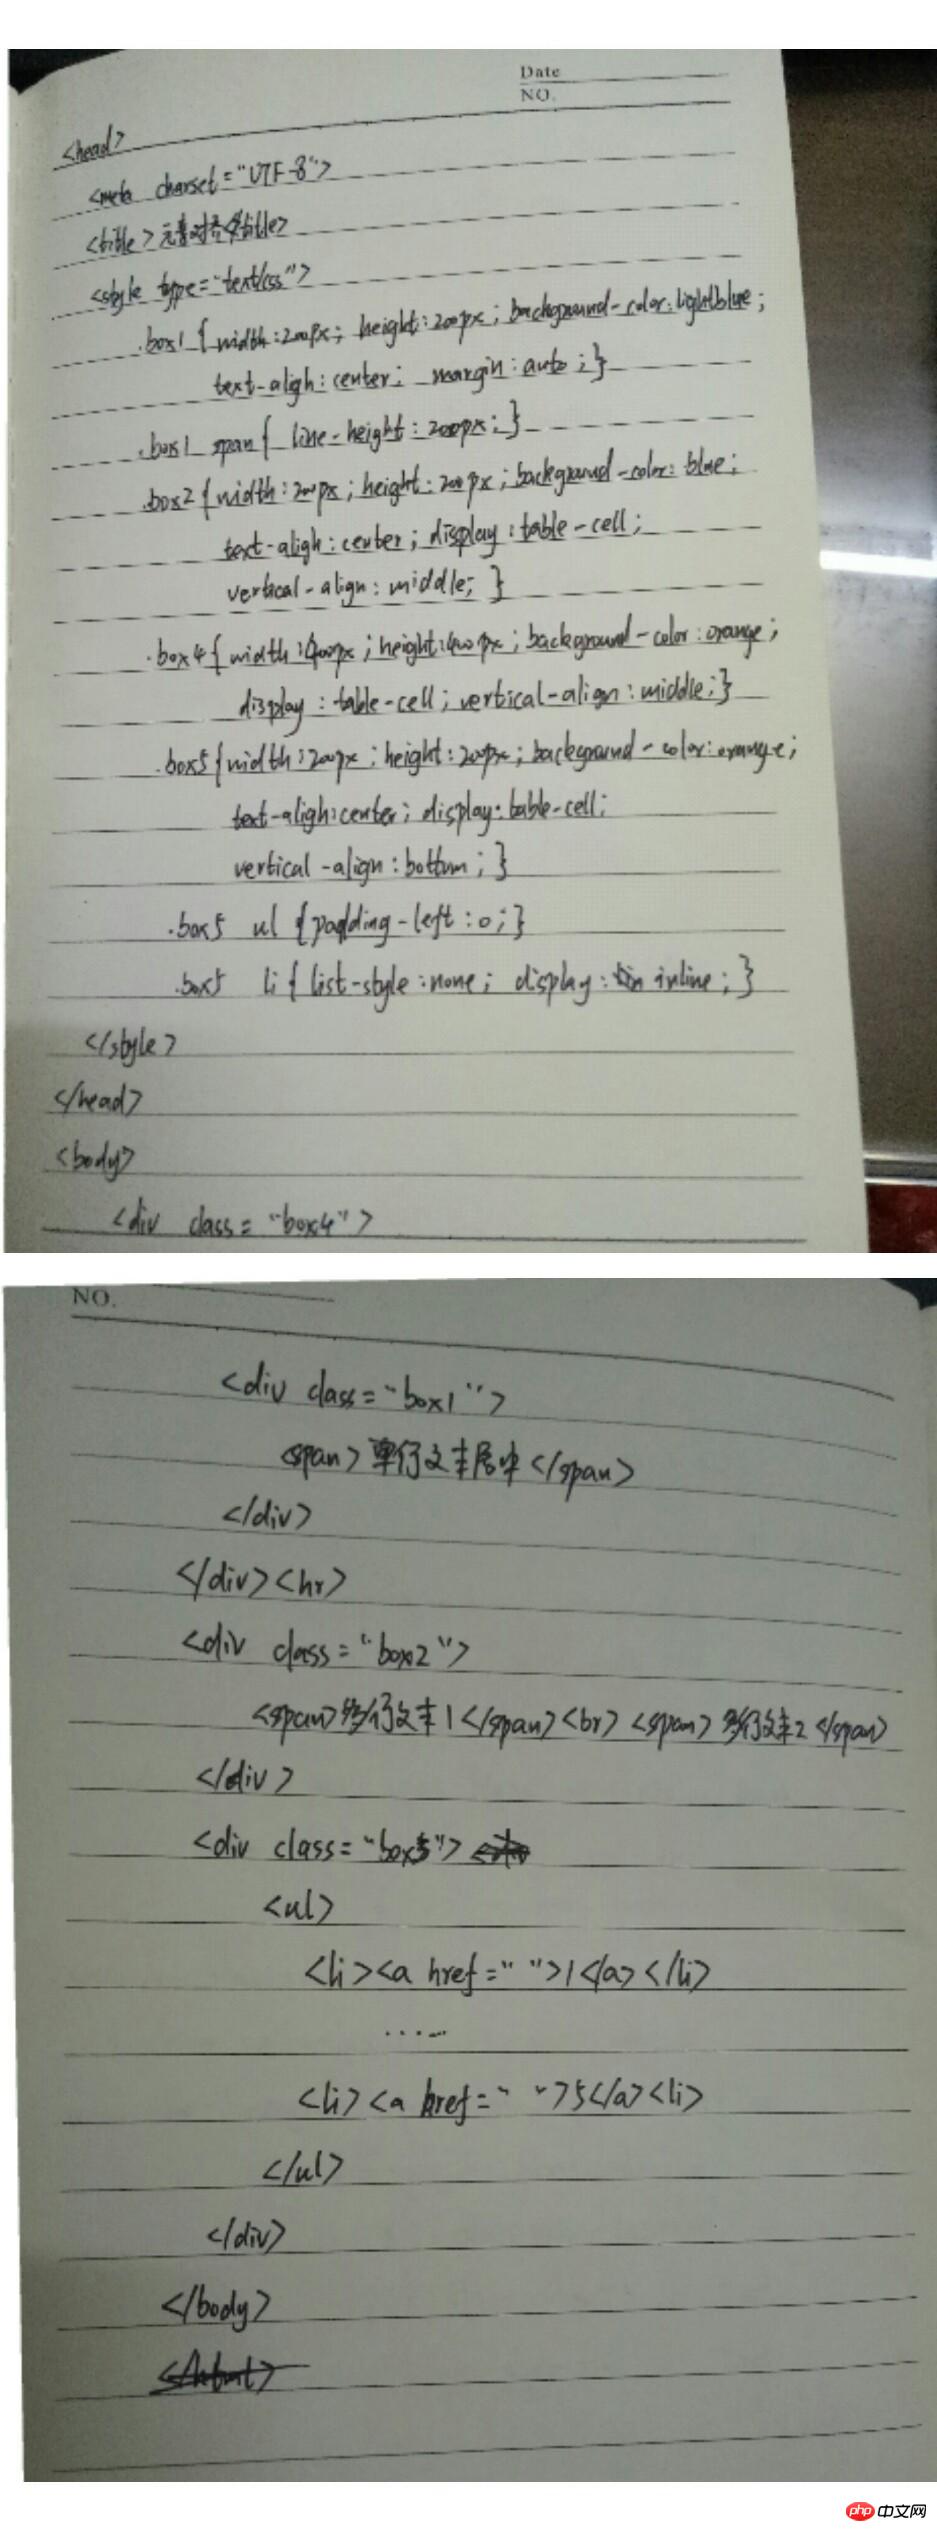 Date
NO.
<head>
<meta charset="UTF-8">
<title>元素对齐</title>
<style type="text/css">
.box1{width:200px; height:200px; background-color:lightblue;
text-aligh:center; margin:auto;}
.box1 span{ line-height:200px;}
.box2{width:200px; height:200px; background-color:blue;
text-aligh:center; display:table-cell;
vertical-align:middle;}
.box4{width:400px; height:400px; background-color:orange;
display:table-cell; vertical-align:middle;}
.box5{width:200px; height:200px; background-color:orange;
text-aligh:center; display:table-cell;
vertical-align:bottom;}
.box5 ul {padding-left:0;}
.box5 li{ list-style:none; display: inline;}
</style>
</head>
<body>
<div class="box4">
NO.
<div class="box1">
<span>单行文本居中</span>
</div>
</div><hr>
<div class="box2">
<span>多行文本1</span><br><span>多行文本2</span>
</div>
<div class="box5">
<ul>
<li><a href=" ">1</a></li>
.....
<li><a href=" ">5</a><li>
</ul>
</div>
</body>
php 中文网